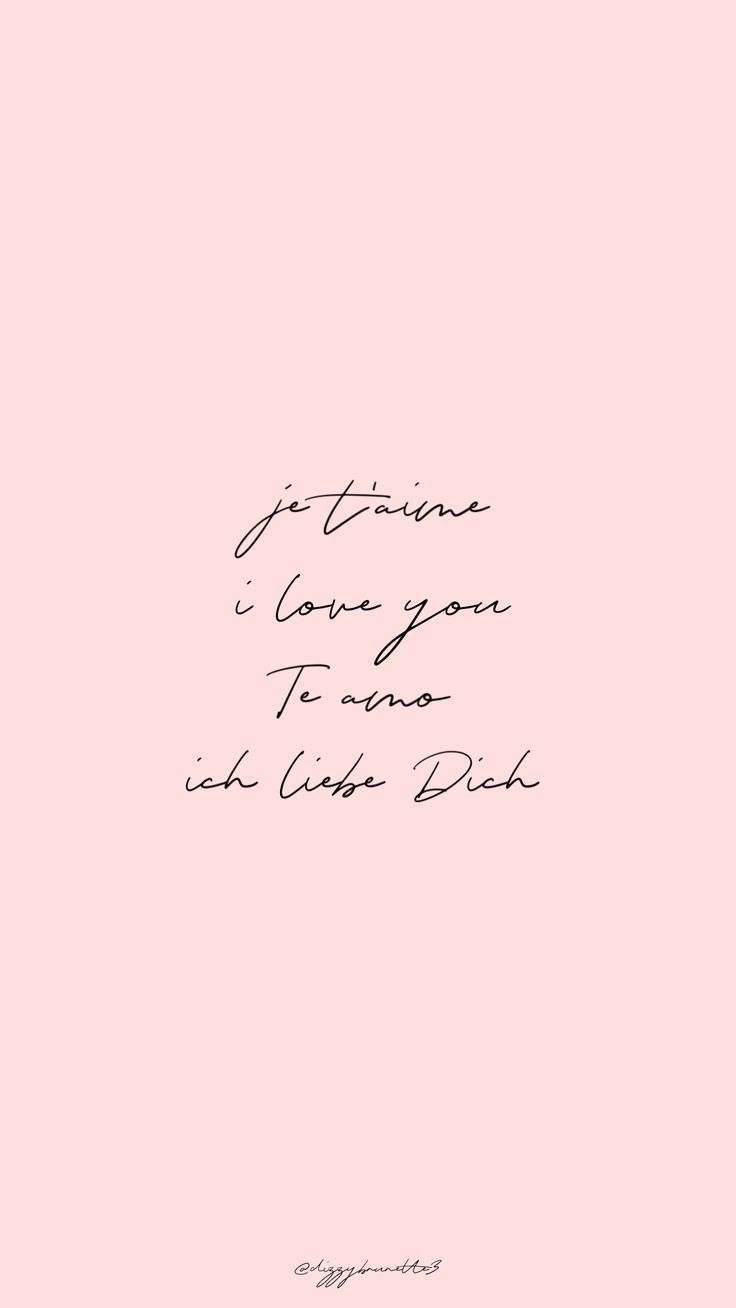 je t'aime
i love you
Te amo
ich liebe Dich
@dizzybrunette3